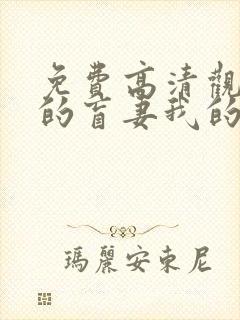 免費高清觀
的盲妻我的
瑪麗安東尼